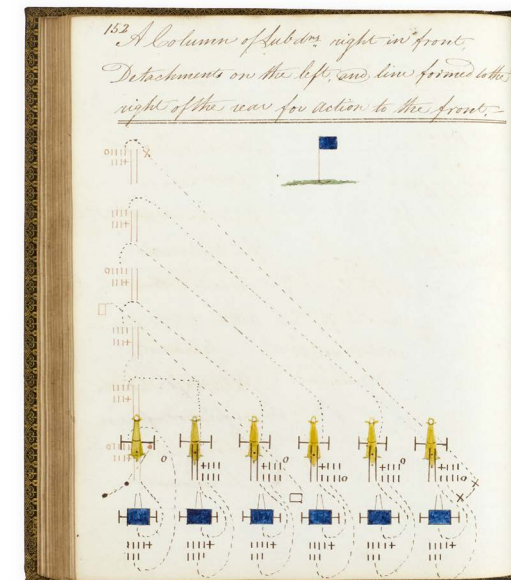 152
A Column of Subdns. right in front,
Detachments on the left, and line formed to the
right of the rear for action to the front.